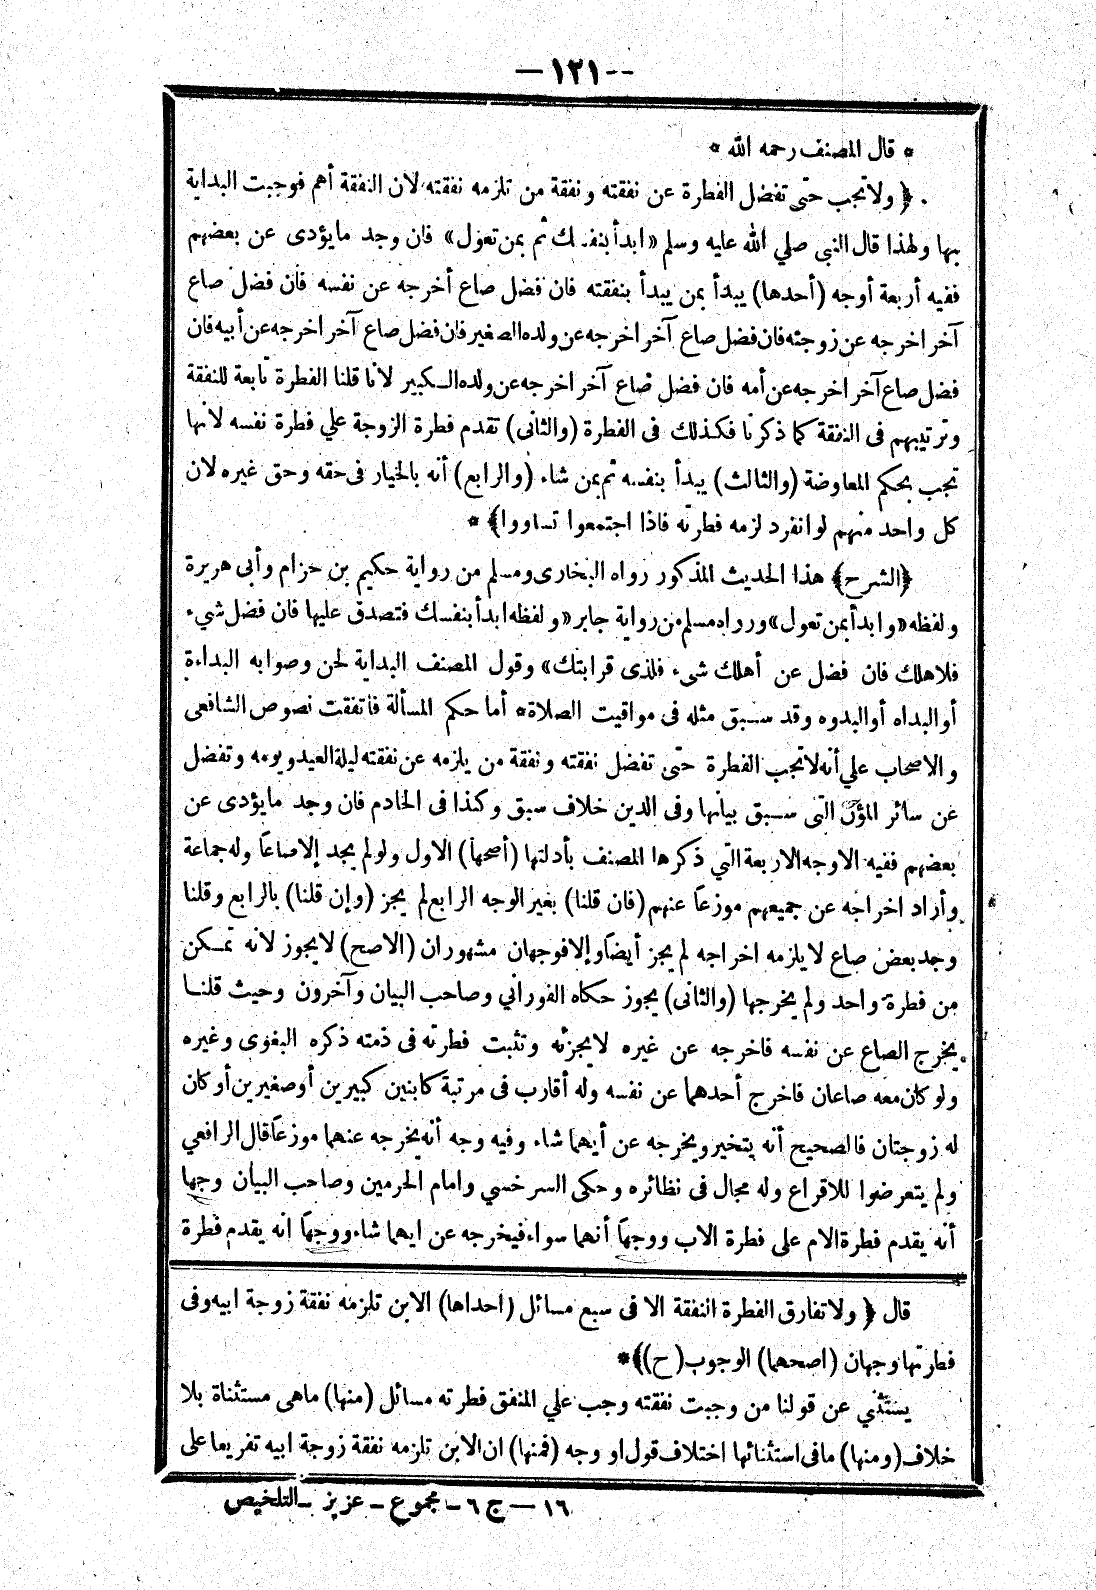 — ١٢١ —
* قال المصنف رحمه الله *
﴿ ولا تجب حتى تفضل الفطرة عن نفقته ونفقة من تلزمه نفقته لان النفقة أهم فوجبت البداية
بها ولهذا قال النبى صلي الله عليه وسلم «ابدأ بنفسك ثم بمن تعول» فان وجد ما يؤدى عن بعضهم
ففيه أربعة أوجه (أحدها) يبدأ بمن يبدأ بنفقته فان فضل صاع أخرجه عن نفسه فان فضل صاع
آخر اخرجه عن زوجته فان فضل صاع آخر اخرجه عن ولده الصغير فان فضل صاع آخر اخرجه عن أبيه فان
فضل صاع آخر اخرجه عن أمه فان فضل صاع آخر اخرجه عن ولده الكبير لأنا قلنا الفطرة تابعة للنفقة
وترتيبهم فى النفقة كما ذكرنا فكذلك فى الفطرة (والثانى) تقدم فطرة الزوجة علي فطرة نفسه لانها
تجب بحكم المعاوضة (والثالث) يبدأ بنفسه ثم بمن شاء (والرابع) أنه بالخيار فى حقه وحق غيره لان
كل واحد منهم لو انفرد لزمه فطرته فاذا اجتمعوا تساووا﴾ *
﴿الشرح﴾ هذا الحديث المذكور رواه البخارى ومسلم من رواية حكيم بن حزام وأبى هريرة
ولفظه «وابدأ بمن تعول» ورواه مسلم من رواية جابر «ولفظه ابدأ بنفسك فتصدق عليها فان فضل شىء
فلاهلك فان فضل عن أهلك شىء فلذى قرابتك» وقول المصنف البداية لحن وصوابه البداءة
أو البداه أو البدوه وقد سبق مثله فى مواقيت الصلاة* أما حكم المسألة فاتفقت نصوص الشافعى
والاصحاب علي أنه لا تجب الفطرة حتى تفضل نفقته ونفقة من يلزمه عن نفقته ليلة العيد ويومه وتفضل
عن سائر المؤن التى سبق بيانها وفى الدين خلاف سبق وكذا فى الخادم فان وجد ما يؤدى عن
بعضهم ففيه الاوجه الاربعة التي ذكرها المصنف بأدلتها (أصحها) الاول ولو لم يجد إلا صاعا وله جماعة
وأراد اخراجه عن جميعهم موزعا عنهم (فان قلنا) بغير الوجه الرابع لم يجز (وإن قلنا) بالرابع وقلنا
وجد بعض صاع لا يلزمه اخراجه لم يجز أيضا وإلا فوجهان مشهوران (الاصح) لا يجوز لانه تمكن
من فطرة واحد ولم يخرجها (والثانى) يجوز حكاه الفوراني وصاحب البيان وآخرون وحيث قلنا
يخرج الصاع عن نفسه فاخرجه عن غيره لا يجزئه وتثبت فطرته فى ذمته ذكره البغوى وغيره
ولو كان معه صاعان فاخرج أحدهما عن نفسه وله أقارب فى مرتبة كابنين كبيرين أو صغيرين أو كان
له زوجتان فالصحيح أنه يتخير ويخرجه عن أيهما شاء وفيه وجه أنه يخرجه عنهما موزعا قال الرافعي
ولم يتعرضوا للاقراع وله مجال فى نظائره وحكى السرخسي وامام الحرمين وصاحب البيان وجها
أنه يقدم فطرة الام على فطرة الاب ووجها أنهما سواء فيخرجه عن ايهما شاء ووجها انه يقدم فطرة
قال ﴿ ولا تفارق الفطرة النفقة الا فى سبع مسائل (احداها) الابن تلزمه نفقة زوجة ابيه وفى
فطرتها وجهان (اصحهما) الوجوب (ح)﴾*
يستثني عن قولنا من وجبت نفقته وجب علي المنفق فطرته مسائل (منها) ماهى مستثناة بلا
خلاف (ومنها) مافى استثنائها اختلاف قول او وجه (فمنها) ان الابن تلزمه نفقة زوجة ابيه تفريعا على
١٦ — ج ٦ – مجموع – عزيز – التلخيص